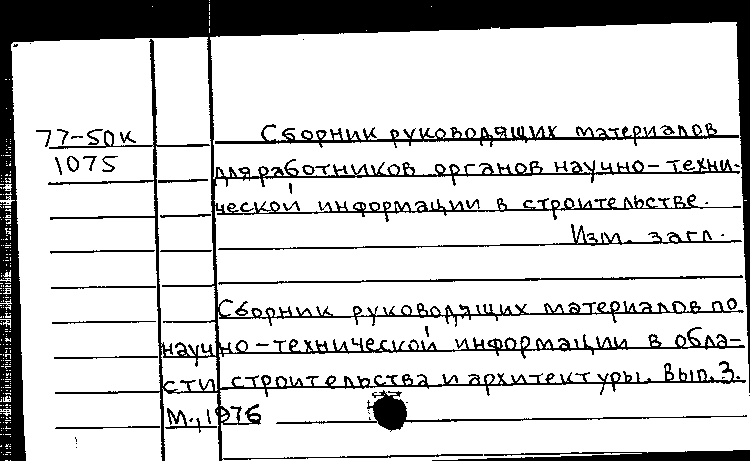 77-50к
1075
Сборник руководящих материалов
для работников органов научно-техни-
ческой информации в строительстве.
Изм. загл.
Сборник руководящих материалов по
научно-технической информации в обла-
сти строительства и архитектуры. Вып. 3.
М., 1976